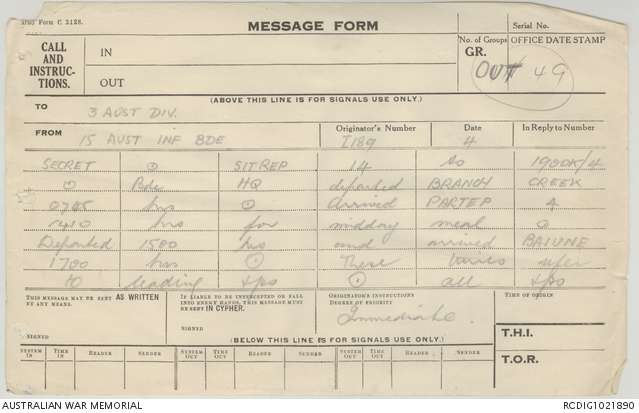 Army Form C 2128.
MESSAGE FORM
Serial No.
CALL AND INSTRUCTIONS.
IN
OUT
No. of Groups
GR.
OFFICE DATE STAMP
OUT 49
(ABOVE THIS LINE IS FOR SIGNALS USE ONLY.)
TO 3 AUST DIV.
FROM 15 AUST INF BDE
Originator's Number I189
Date 4
In Reply to Number
SECRET ⊙ SITREP 14 to 1900K/4
⊙ Bde HQ departed BRANDY CREEK
0745 hrs ⊙ Arrived PARTEP 4
1410 hrs for midday meal ⊙
Departed 1500 hrs and arrived BAIUNE
1700 hrs ⊙ These times refer
to leading tps ⊙ all tps
THIS MESSAGE MAY BE SENT AS WRITTEN BY ANY MEANS.
SIGNED
IF LIABLE TO BE INTERCEPTED OR FALL INTO ENEMY HANDS, THIS MESSAGE MUST BE SENT IN CIPHER.
SIGNED
ORIGINATOR'S INSTRUCTIONS
DEGREE OF PRIORITY
Immediate
TIME OF ORIGIN
T.H.I.
T.O.R.
(BELOW THIS LINE IS FOR SIGNALS USE ONLY.)
SYSTEM IN TIME IN READER SENDER SYSTEM OUT TIME OUT READER SENDER SYSTEM OUT TIME OUT READER SENDER
AUSTRALIAN WAR MEMORIAL
RCDIG1021890